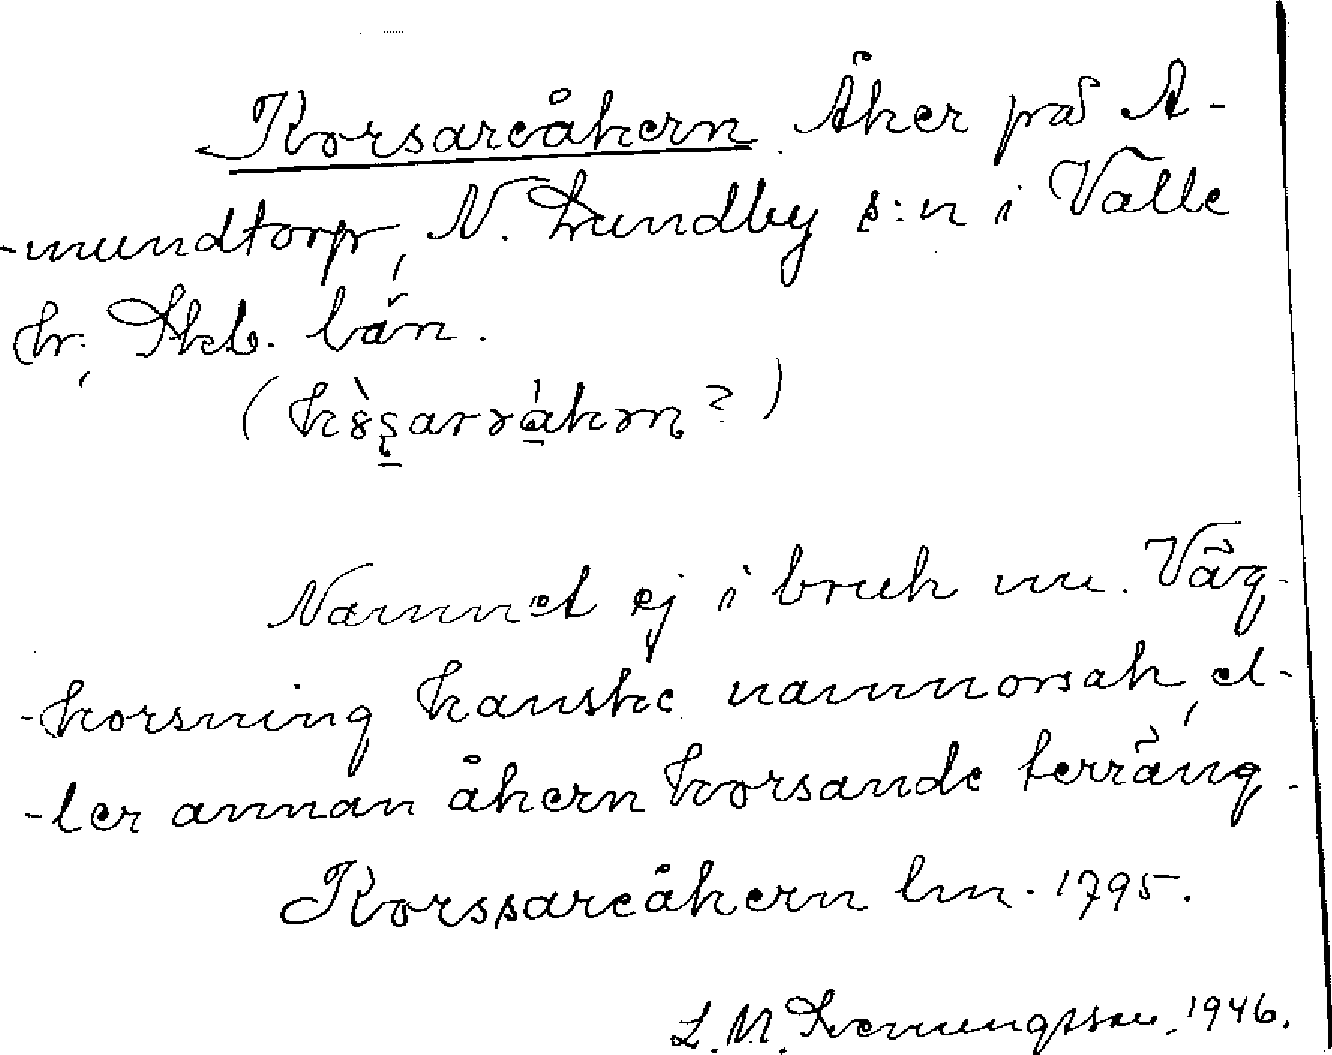 Korsareåkern. Åker på A-
-mundtorp, N. Lundby s:n i Valle
hr, Skb. län.
Namnet ej i bruk nu. Väg-
-korsning kanske namnorsak, el-
-ler annan åkern korsande terräng.
Korssareåkern lm. 1795.
L. M. 1946.